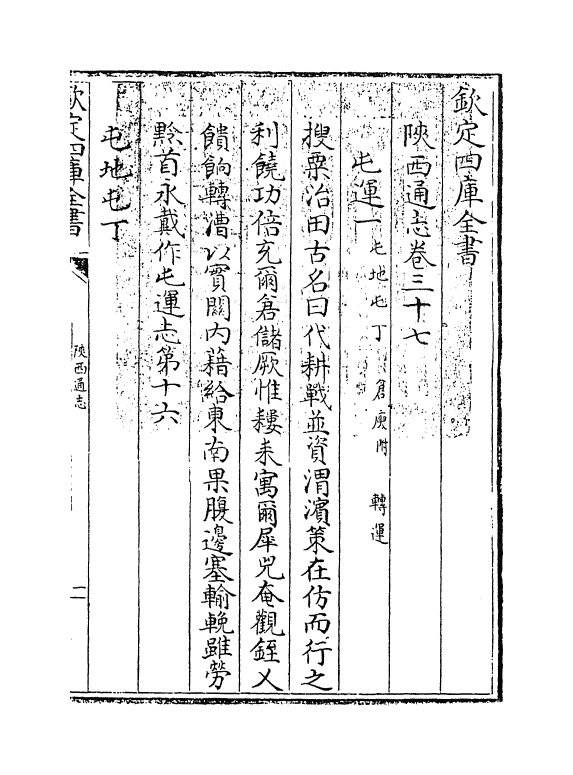 欽定四庫全書
陜西通志卷三十七
屯運一 屯地屯丁 倉庾附 轉運
搜粟治田古名曰代耕戰並資渭濱策在仿而行之
利饒功倍充爾倉儲厥惟耬耒寓爾犀兕奄觀銍乂
饋餉轉漕以實關内藉給東南果腹邊塞輸輓雖勞
黔首永戴作屯運志第十六
屯地屯丁
欽定四庫全書
陜西通志
一